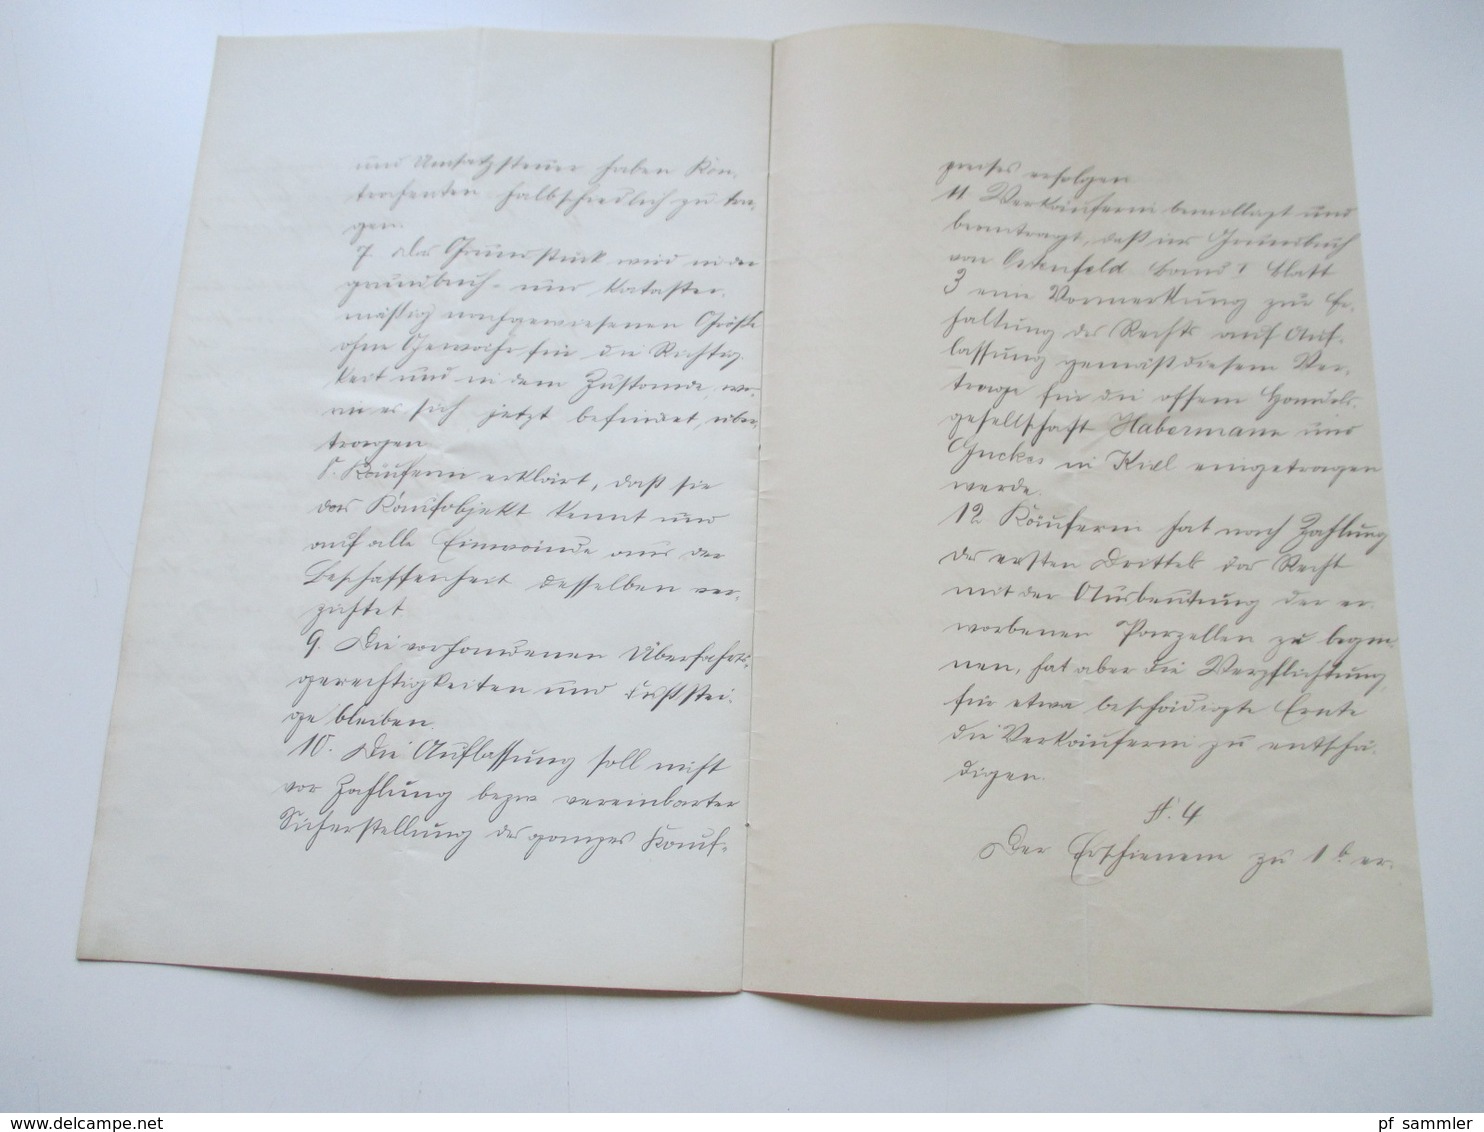 und Umsatzsteuer haben Kon-
trahenten halbschiedlich zu tra-
gen.
7. Das Grundstück wird in der
grundbuch- und kataster-
mäßig nachgewiesenen Größe
ohne Gewähr für die Richtig-
keit und in dem Zustande, wo-
rin es sich jetzt befindet, über-
tragen.
8. Käuferin erklärt, daß sie
das Kaufobjekt kennt und
auf alle Einwände aus der
Beschaffenheit desselben ver-
zichtet.
9. Die vorhandenen Überfahrts-
gerechtigkeiten und Fußstei-
ge bleiben.
10. Die Auflassung soll nicht
vor Zahlung bezw vereinbarter
Sicherstellung des ganzes Kauf-
preises erfolgen.
11 Verkäuferin bewilligt und
beantragt, daß im Grundbuch
von Ostenfeld Band I Blatt
3 eine Vormerkung zur Er-
haltung des Rechts auf Auf-
lassung gemäß diesem Ver-
trage für die offene Handels-
gesellschaft Habermann und
Guckes in Kiel eingetragen
werde.
12 Käuferin hat nach Zahlung
des ersten Drittels das Recht
mit der Ausbeutung der er-
worbenen Parzellen zu begin-
nen, hat aber die Verpflichtung
für etwa beschädigte Ernte
die Verkäuferin zu entschä-
digen.
§. 4
Der Erschienene zu 1 b. er-
pf sammler